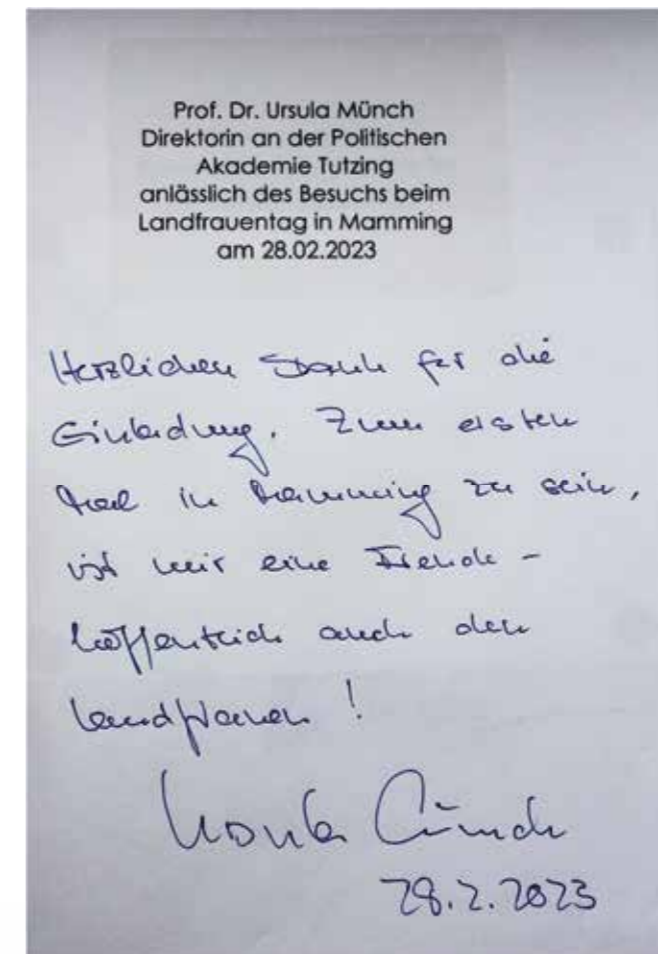 Prof. Dr. Ursula Münch
Direktorin an der Politischen
Akademie Tutzing
anlässlich des Besuchs beim
Landfrauentag in Mamming
am 28.02.2023
Herzlichen Dank für die
Einladung. Zum ersten
Mal in Mamming zu sein,
ist mir eine Freude –
hoffentlich auch den
Landfrauen!
Ursula Münch
28.2.2023